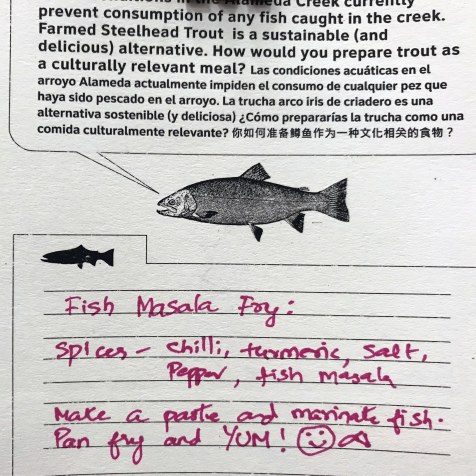 Creek currently
prevent consumption of any fish caught in the creek.
Farmed Steelhead Trout is a sustainable (and
delicious) alternative. How would you prepare trout as
a culturally relevant meal? Las condiciones acuáticas en el
arroyo Alameda actualmente impiden el consumo de cualquier pez que
haya sido pescado en el arroyo. La trucha arco iris de criadero es una
alternativa sostenible (y deliciosa) ¿Cómo prepararías la trucha como una
comida culturalmente relevante? 你如何准备鳟鱼作为一种文化相关的食物？
Fish Masala Fry:
Spices - chilli, turmeric, salt,
Pepper, fish masala
Make a paste and marinate fish.
Pan fry and YUM!